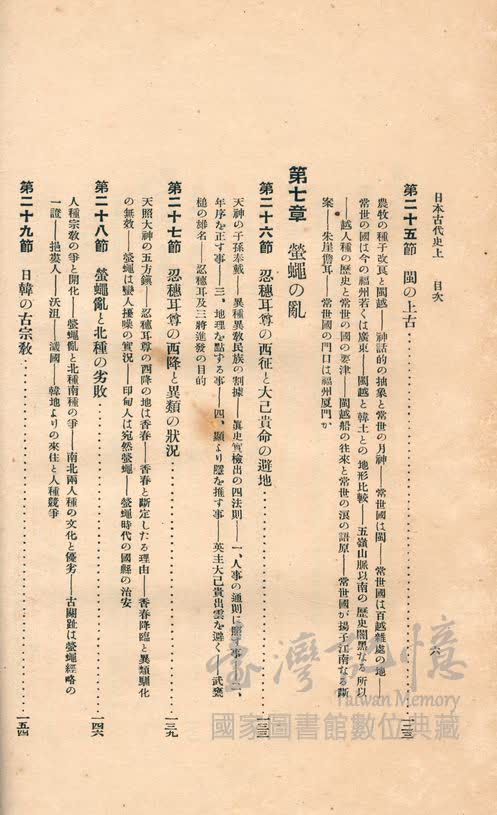 日本古代史上 目次 六
第二十五節 閩の上古……一二三
農牧の種子改良と閩越——神話的の抽象と常世の月神——常世國は閩——常世國は百越雜處の地——
常世の國は今の福州若くは廣東——閩越と韓土との地形比較——五嶺山脈以南の歷史闇黑なる所以
——越人種の歷史と常世の國の要津——閩越船の往來と常世の浪の語原——常世國が揚子江南なる斷
案——朱崖儋耳——常世國の門口は福州厦門か
第七章 螢蠅の亂
第二十六節 忍穗耳尊の西征と大己貴命の避地……一三三
天神の子孫奉戴——異種異敎民族の割據——眞史實檢出の四法則——一、人事の通則に照す事——二、
年序を正す事——三、地理を點する事——四、顯より隱を推す事——英主大己貴出雲を避く——武甕
槌の雄名——忍穗耳及三將進發の目的
第二十七節 忍穗耳尊の西降と異類の狀況……一三九
天照大神の五方鎭——忍穗耳尊の西降の地は香春——香春と斷定したる理由——香春降臨と異類馴化
の無效——螢蠅は蠻人擾噪の實況——印甸人は宛然螢蠅——螢蠅時代の國縣の治安
第二十八節 螢蠅亂と北種の劣敗……一四六
人種宗敎の爭と開化——螢蠅亂と北種南種の爭——南北兩人種の文化と優劣——古闕趾は螢蠅經略の
一證——挹婁人——沃沮——濊國——韓地よりの來住と人種競爭
第二十九節 日韓の古宗敎……一五四
臺灣記憶
Taiwan Memory
國家圖書館數位典藏